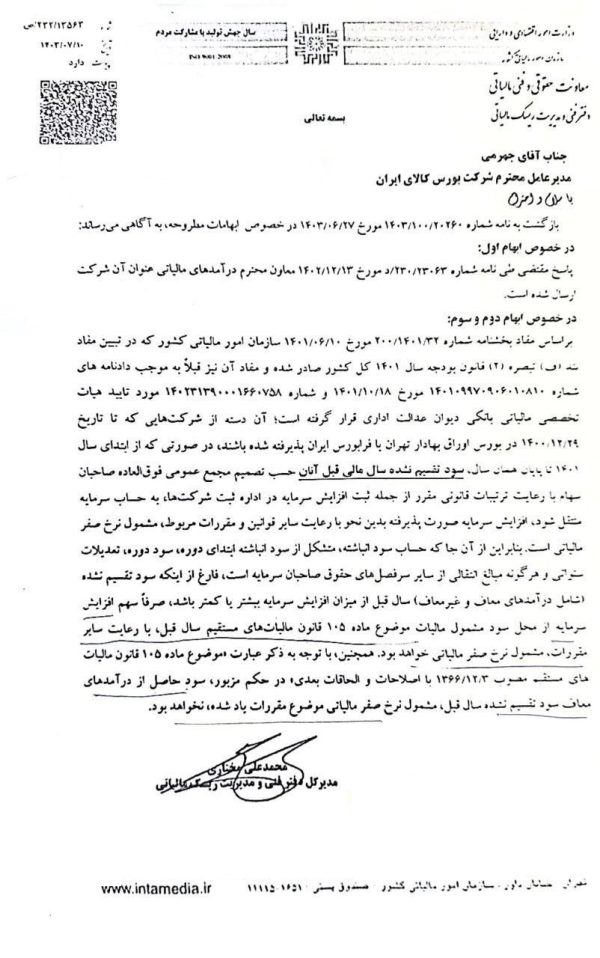 وزارت امور اقتصادی و دارایی
سازمان امور مالیاتی کشور
معاونت حقوقی و فنی مالیاتی
دفتر فنی و مدیریت ریسک مالیاتی
سال جهش تولید با مشارکت مردم
ISO 9001:2008
۲۳۲/۱۳۵۶۳/ص
۱۴۰۳/۰۷/۱۰
دارد
بسمه تعالی
جناب آقای جهرمی
مدیرعامل محترم شرکت بورس کالای ایران
با سلام و احترام
بازگشت به نامه شماره ۱۴۰۳/۱۰۰/۲۰۲۶۰ مورخ ۱۴۰۳/۰۶/۲۷ در خصوص ابهامات مطروحه، به آگاهی می‌رساند:
در خصوص ابهام اول:
پاسخ مقتضی طی نامه شماره ۲۳۰/۲۳۰۶۳/د مورخ ۱۴۰۲/۱۲/۱۳ معاون محترم درآمدهای مالیاتی عنوان آن شرکت
ارسال شده است.
در خصوص ابهام دوم و سوم:
براساس مفاد بخشنامه شماره ۲۰۰/۱۴۰۱/۳۲ مورخ ۱۴۰۱/۰۶/۱۰ سازمان امور مالیاتی کشور که در تبیین مفاد
بند (ف) تبصره (۲) قانون بودجه سال ۱۴۰۱ کل کشور صادر شده و مفاد آن نیز قبلاً به موجب دادنامه های
شماره ۱۴۰۱۰۹۹۷۰۹۰۶۰۱۰۸۱۰ مورخ ۱۴۰۱/۱۰/۱۸ و شماره ۱۴۰۲۳۱۳۹۰۰۰۱۶۶۰۷۵۸ مورد تایید هیات
تخصصی مالیاتی بانکی دیوان عدالت اداری قرار گرفته است؛ آن دسته از شرکت‌هایی که تا تاریخ
۱۴۰۰/۱۲/۲۹ در بورس اوراق بهادار تهران یا فرابورس ایران پذیرفته شده باشند، در صورتی که از ابتدای سال
۱۴۰۱ تا پایان همان سال، سود تقسیم نشده سال مالی قبل آنان حسب تصمیم مجمع عمومی فوق‌العاده صاحبان
سهام با رعایت ترتیبات قانونی مقرر از جمله ثبت افزایش سرمایه در اداره ثبت شرکت‌ها، به حساب سرمایه
منتقل شود، افزایش سرمایه صورت پذیرفته بدین نحو با رعایت سایر قوانین و مقررات مربوط، مشمول نرخ صفر
مالیاتی است. بنابراین از آن جا که حساب سود انباشته، متشکل از سود انباشته ابتدای دوره، سود دوره، تعدیلات
سنواتی و هرگونه مبالغ انتقالی از سایر سرفصل‌های حقوق صاحبان سرمایه است، فارغ از اینکه سود تقسیم نشده
(شامل درآمدهای معاف و غیرمعاف) سال قبل از میزان افزایش سرمایه بیشتر یا کمتر باشد، صرفاً سهم افزایش
سرمایه از محل سود مشمول مالیات موضوع ماده ۱۰۵ قانون مالیات‌های مستقیم سال قبل، با رعایت سایر
مقررات، مشمول نرخ صفر مالیاتی خواهد بود. همچنین، با توجه به ذکر عبارت «موضوع ماده ۱۰۵ قانون مالیات
های مستقیم مصوب ۱۳۶۶/۱۲/۳ با اصلاحات و الحاقات بعدی» در حکم مزبور، سود حاصل از درآمدهای
معاف سود تقسیم نشده سال قبل، مشمول نرخ صفر مالیاتی موضوع مقررات یاد شده، نخواهد بود.
محمدعلی مختاری
مدیرکل دفتر فنی و مدیریت ریسک مالیاتی
تهران - خیابان داور - سازمان امور مالیاتی کشور - صندوق پستی ۱۶۵۱-۱۱۱۱۵ www.intamedia.ir